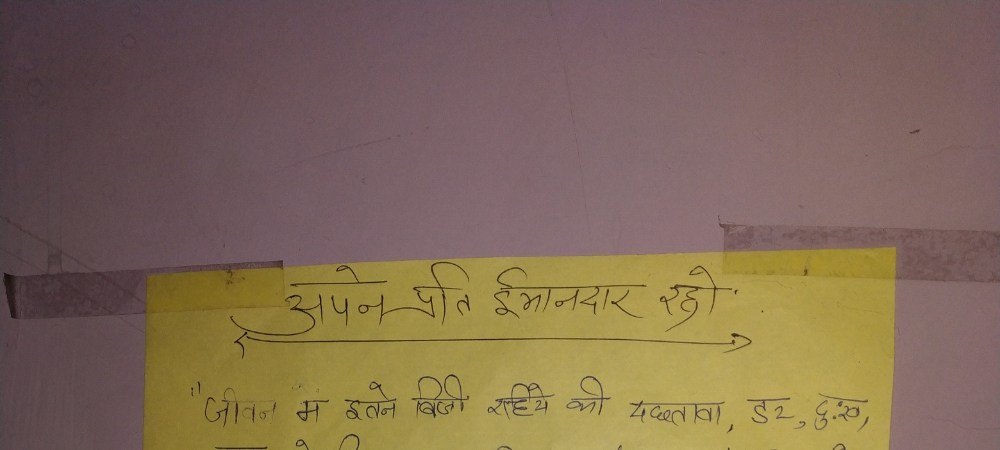 अपने प्रति ईमानदार रहो
"जीवन" म इतने बिजी रहिये की पछतावा, डर, दुःख,